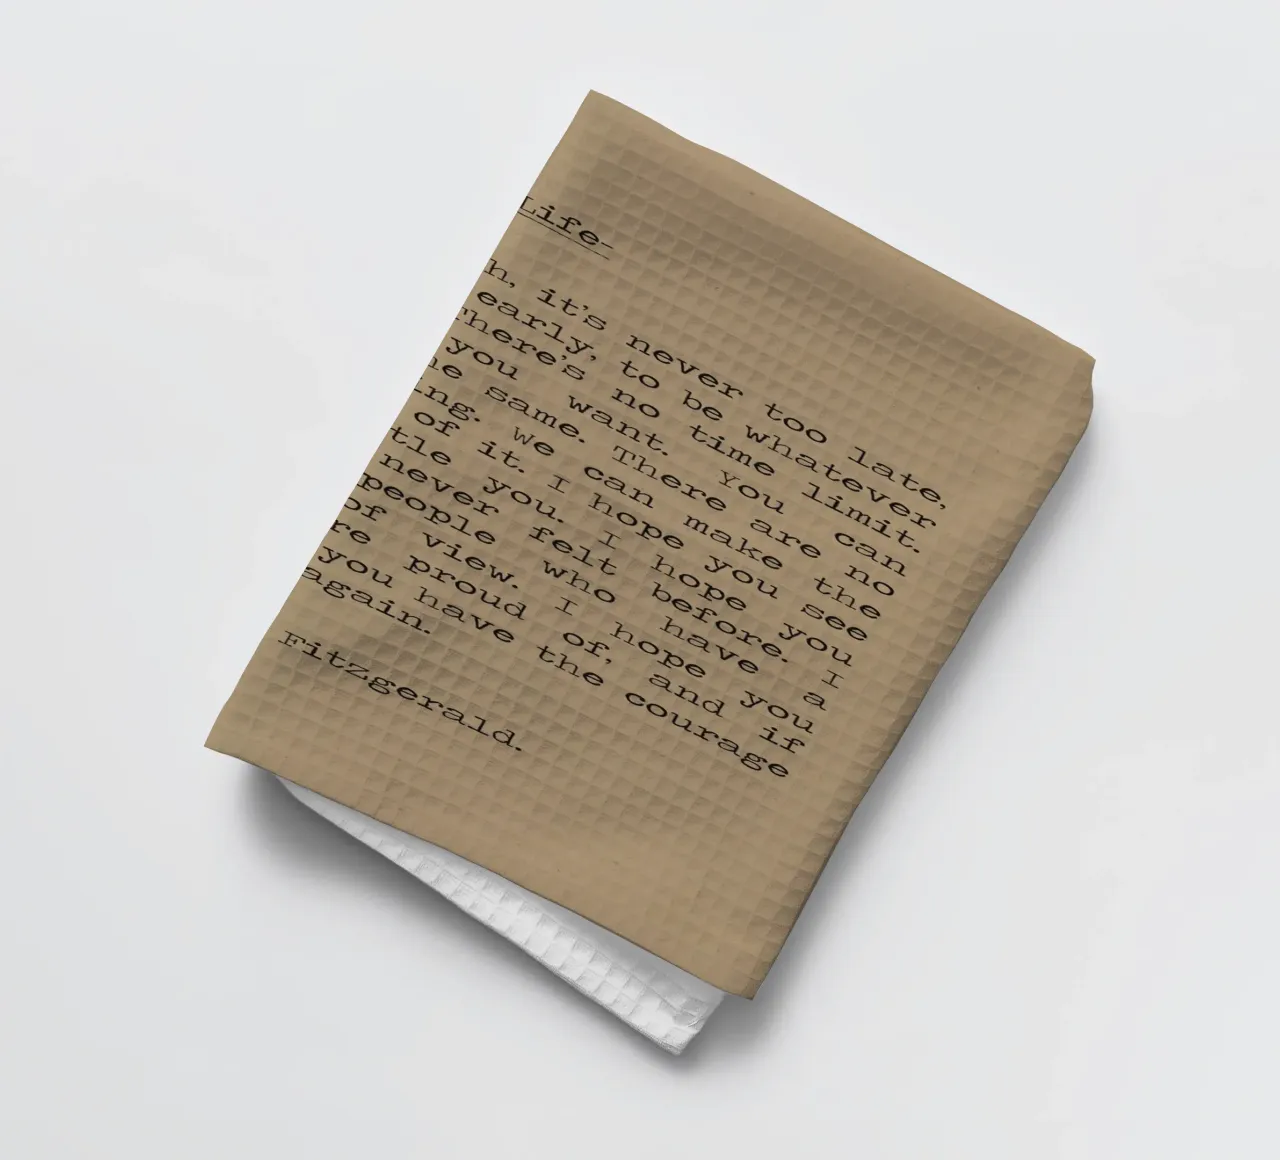 Life-
h, it's never too late,
early, to be whatever
There's no time limit.
you want. You can
he same. There are no
ing. We can make the
of it. I hope you see
tle you. I hope you
never felt before. I
people who have a
of view. I hope you
re proud of, and if
you have the courage
again.
Fitzgerald.